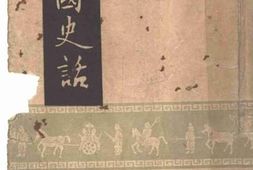 國史話